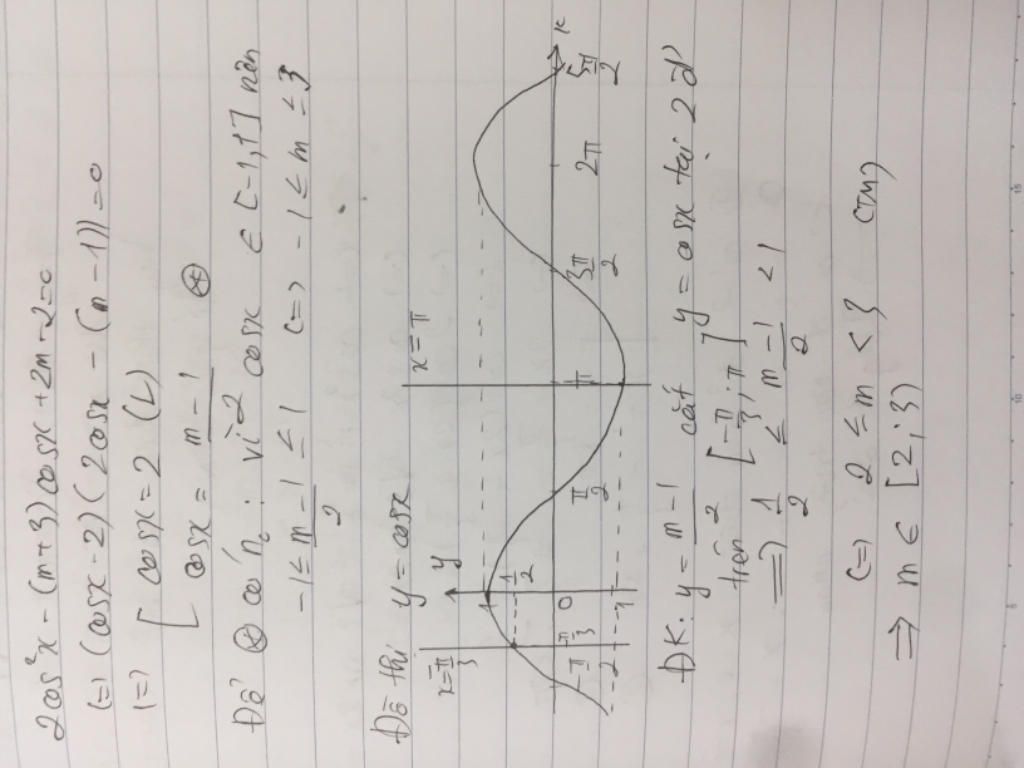 2cos²x - (m+3)cosx + 2m - 2 = 0
(=) (cosx - 2)(2cosx - (m - 1)) = 0
(=) [ cosx = 2 (L)
[ cosx = m - 1 / 2 ⊛
Để ⊛ có n₀ : vì cosx ∈ [-1,1] nên
-1 ≤ m - 1 / 2 ≤ 1 (=) -1 ≤ m ≤ 3
Đồ thị y = cosx
x = -π/3 y x = π
1 1/2 0 -1 -π/2 -π/3 π/2 π 3π/2 2π 5π/2 x
ĐK: y = m - 1 / 2 cắt y = cosx tại 2 đ
trên [-π/3; π]
=> 1/2 ≤ m - 1 / 2 < 1
(=) 2 ≤ m < 3 (TM)
=> m ∈ [2; 3)